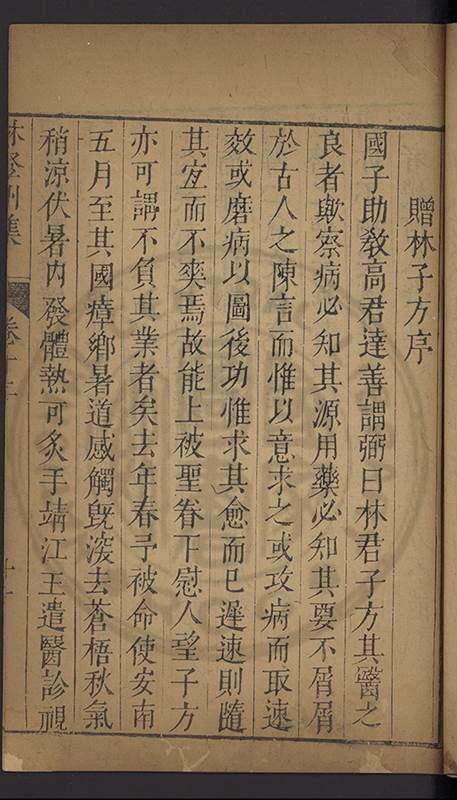 贈林子方序
國子助教高君達善謂弼曰林君子方其醫之
良者歟察病必知其源用藥必知其要不屑屑
於古人之陳言而惟以意求之或攻病而取速
效或磨病以圖後功惟求其愈而已遲速則隨
其宜而不爽焉故能上被聖眷下慰人望子方
亦可謂不負其業者矣去年春予被命使安南
五月至其國瘴鄉暑道感觸旣深去蒼梧秋氣
稍涼伏暑內發體熱可炙手靖江王遣醫診視
林登州集
卷十二